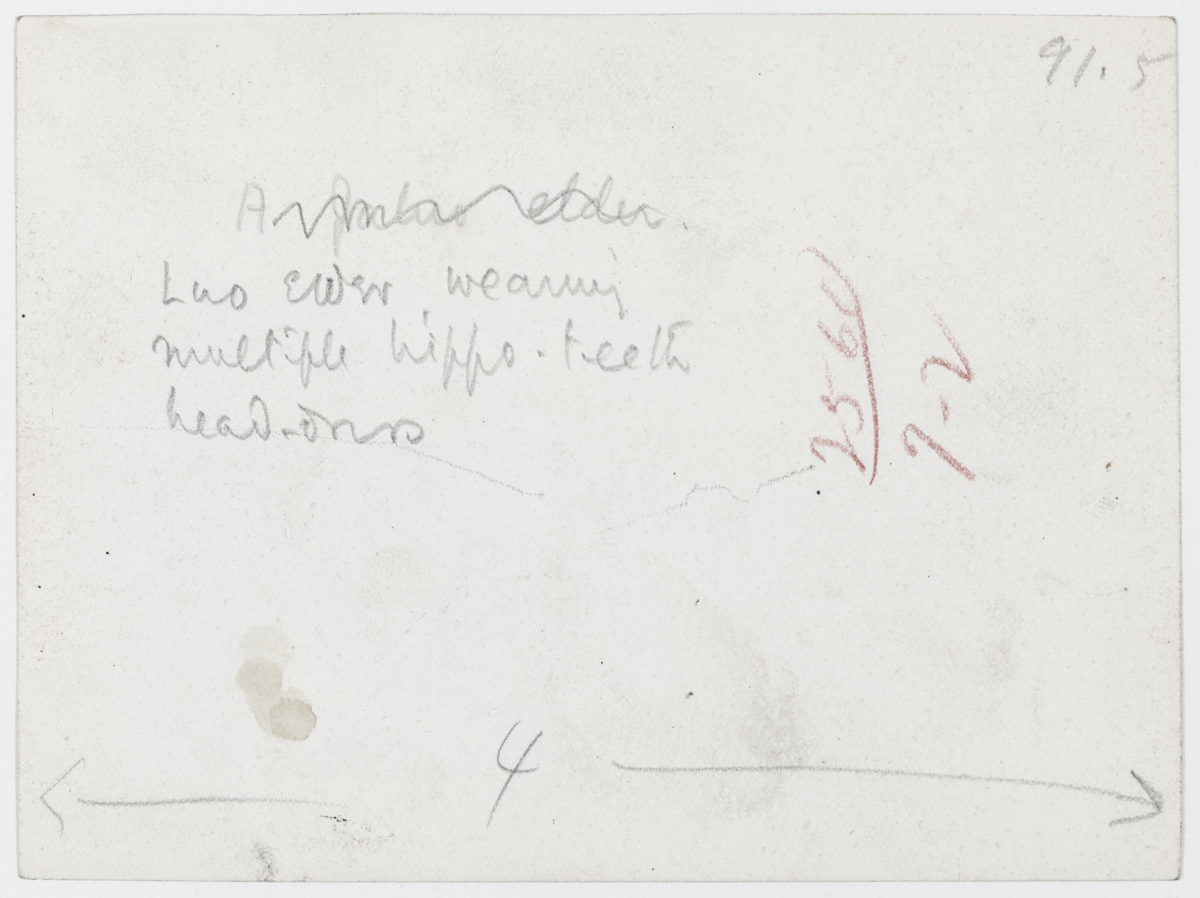 91.5
elder.
Luo elder wearing
multiple hippo-teeth
head-dress
7-2
4